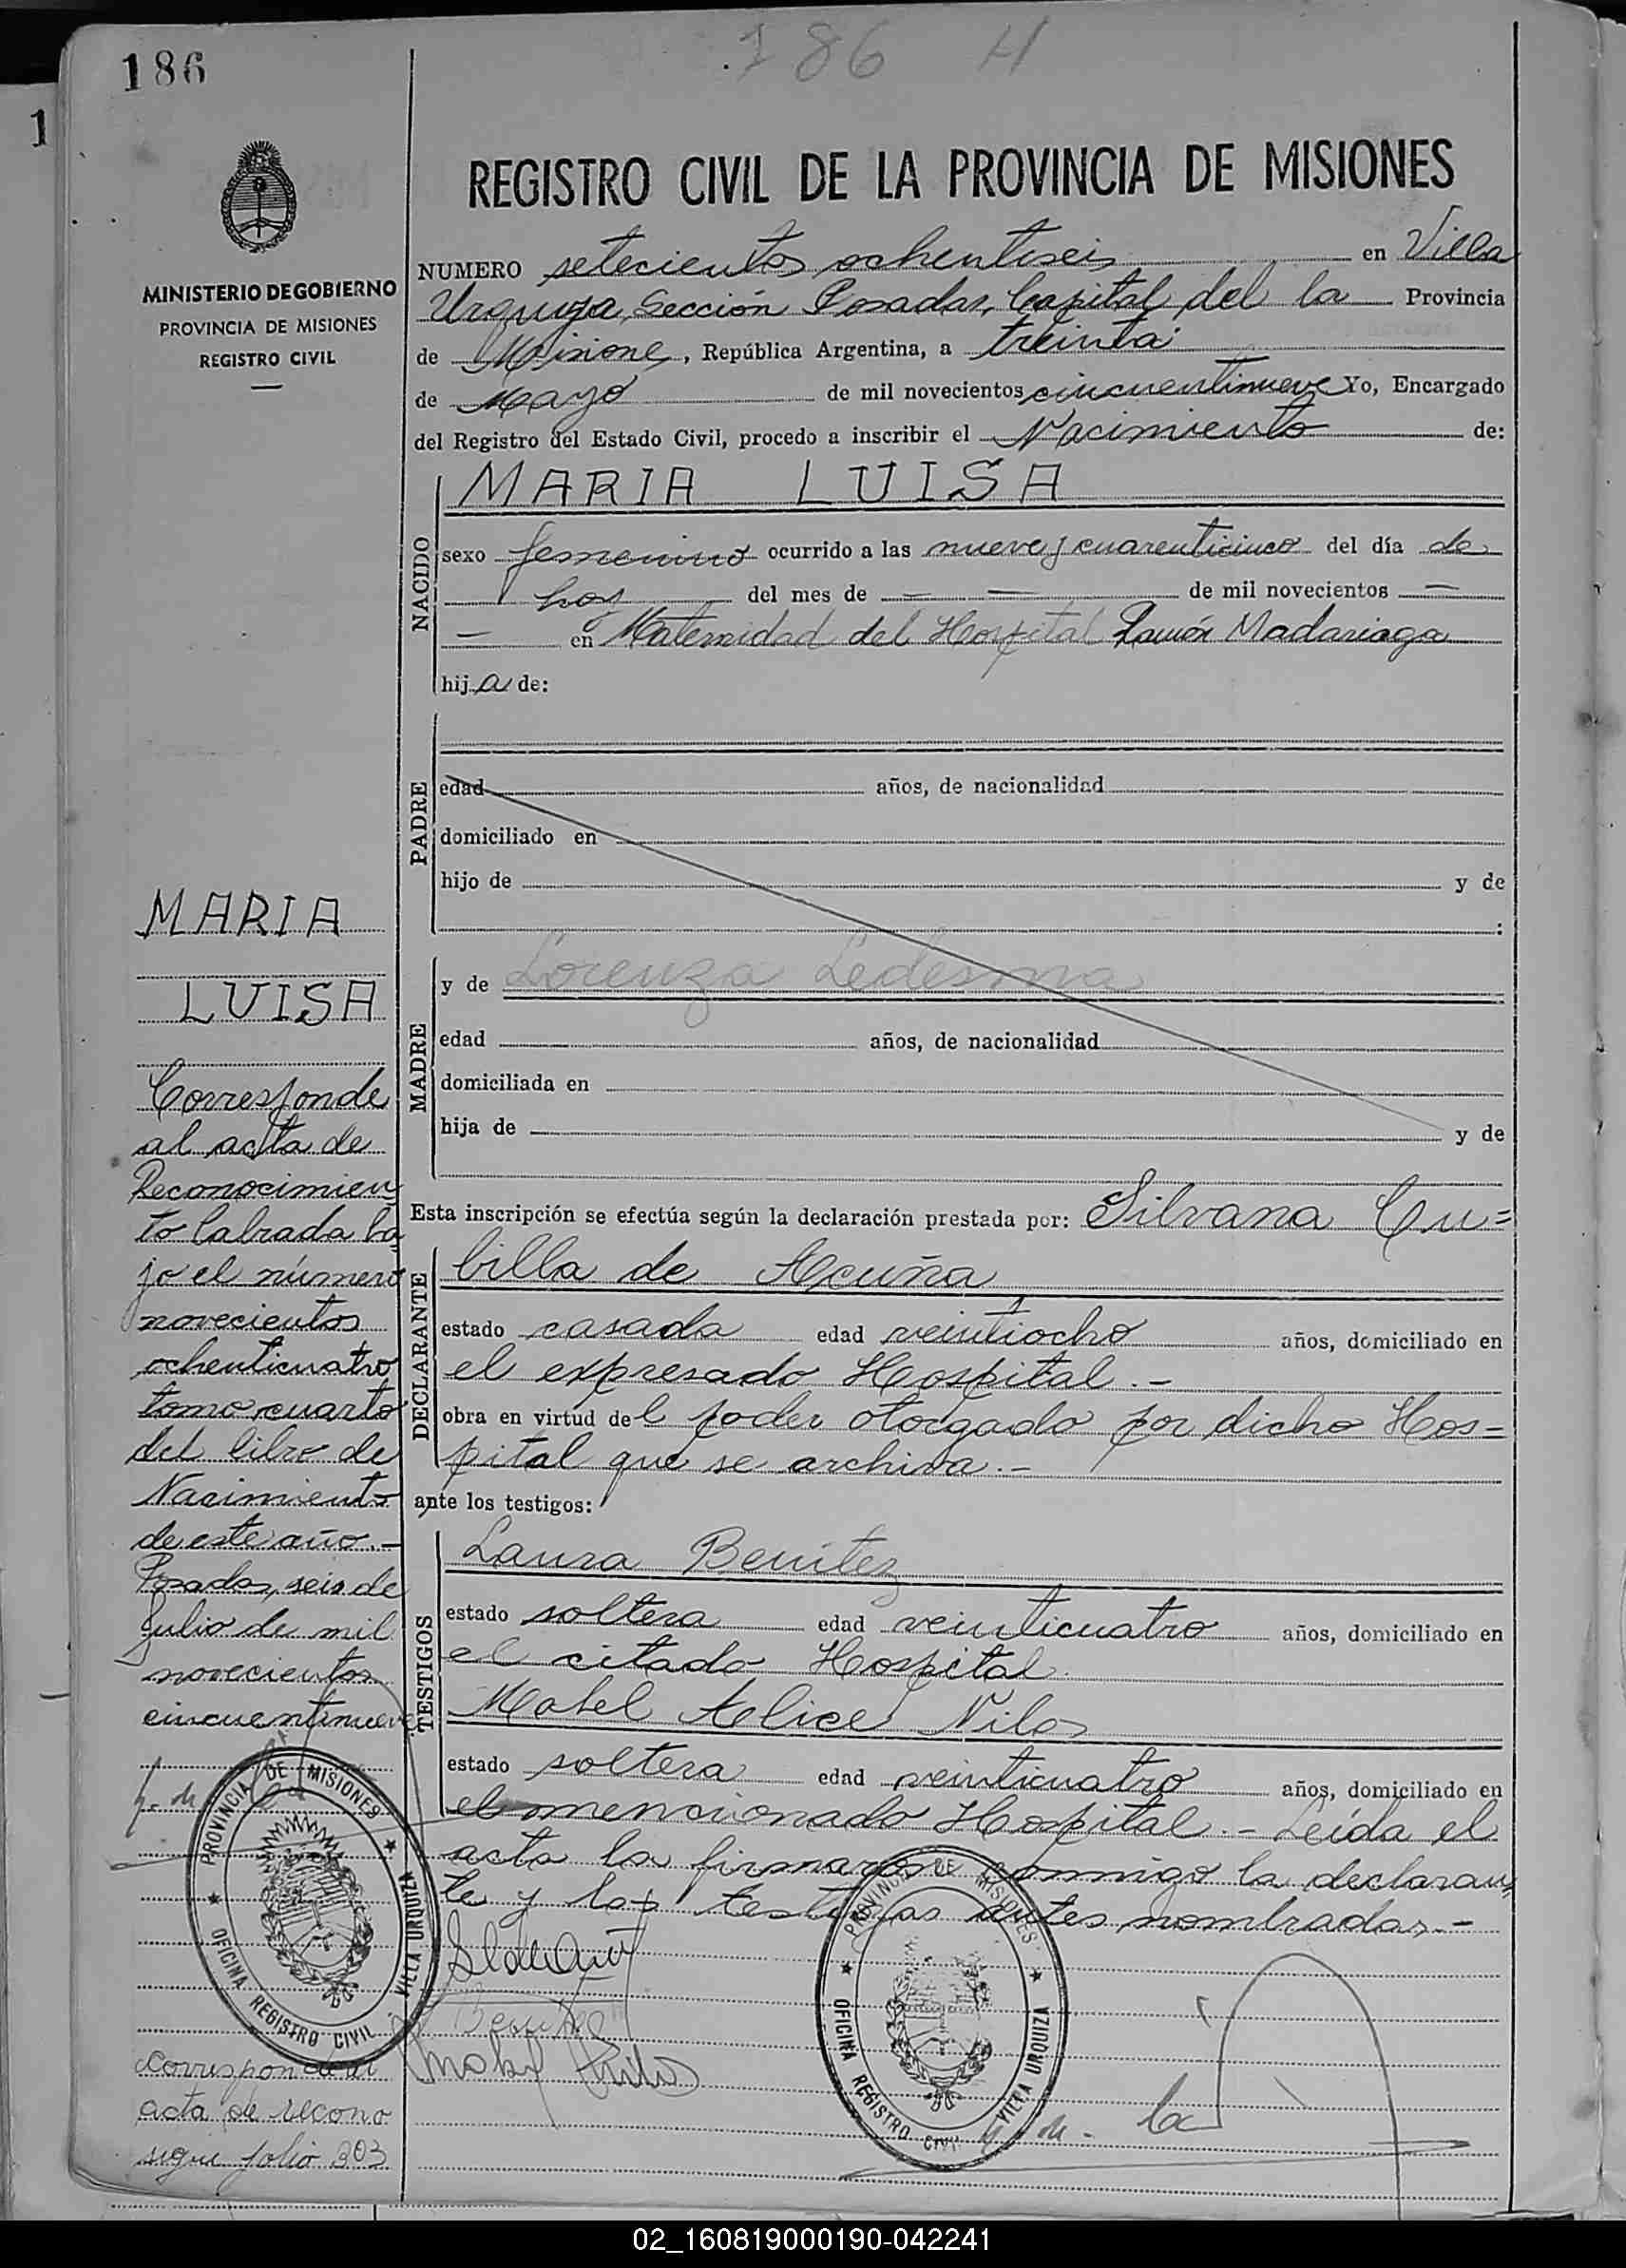 186
186 H
1
MINISTERIO DE GOBIERNO
PROVINCIA DE MISIONES
REGISTRO CIVIL
REGISTRO CIVIL DE LA PROVINCIA DE MISIONES
NUMERO setecientos ochentiseis en Villa
Urquiza, Sección Posadas, Capital del la Provincia
de Misiones, República Argentina, a treinta
de Mayo de mil novecientos cincuentinueve Yo, Encargado
del Registro del Estado Civil, procedo a inscribir el Nacimiento de:
NACIDO
MARIA LUISA
sexo femenino ocurrido a las nueve y cuarenticinco del día de
hoy del mes de — — de mil novecientos —
— en Maternidad del Hospital Ramón Madariaga
hija de:
PADRE
edad años, de nacionalidad
domiciliado en
hijo de y de
:
MADRE
y de Lorenza Ledesma
edad años, de nacionalidad
domiciliada en
hija de y de
Esta inscripción se efectúa según la declaración prestada por: Silvana Cu=
DECLARANTE
billa de Acuña
estado casada edad veintiocho años, domiciliado en
el expresado Hospital.-
obra en virtud del poder otorgado por dicho Hos=
pital que se archiva.-
ante los testigos:
TESTIGOS
Laura Benitez
estado soltera edad veinticuatro años, domiciliado en
el citado Hospital.
Mabel Alice Nilos
estado soltera edad veinticuatro años, domiciliado en
el mencionado Hospital.- Leída el
acta la firmaron conmigo la declaran
te y los testigos antes nombrados.-
Benitez
MARIA
LUISA
Corresponde
al acta de
Reconocimien
to labrada ba
jo el número
novecientos
ochenticuatro
tomo cuarto
del libro de
Nacimiento
de este año.-
Posadas, seis de
Julio de mil
novecientos
cincuentinueve
PROVINCIA DE MISIONES
OFICINA REGISTRO CIVIL VILLA URQUIZA
PROVINCIA DE MISIONES
OFICINA REGISTRO CIVIL VILLA URQUIZA
corresponde al
acta de recono
sigue folio 303
02_160819000190-042241